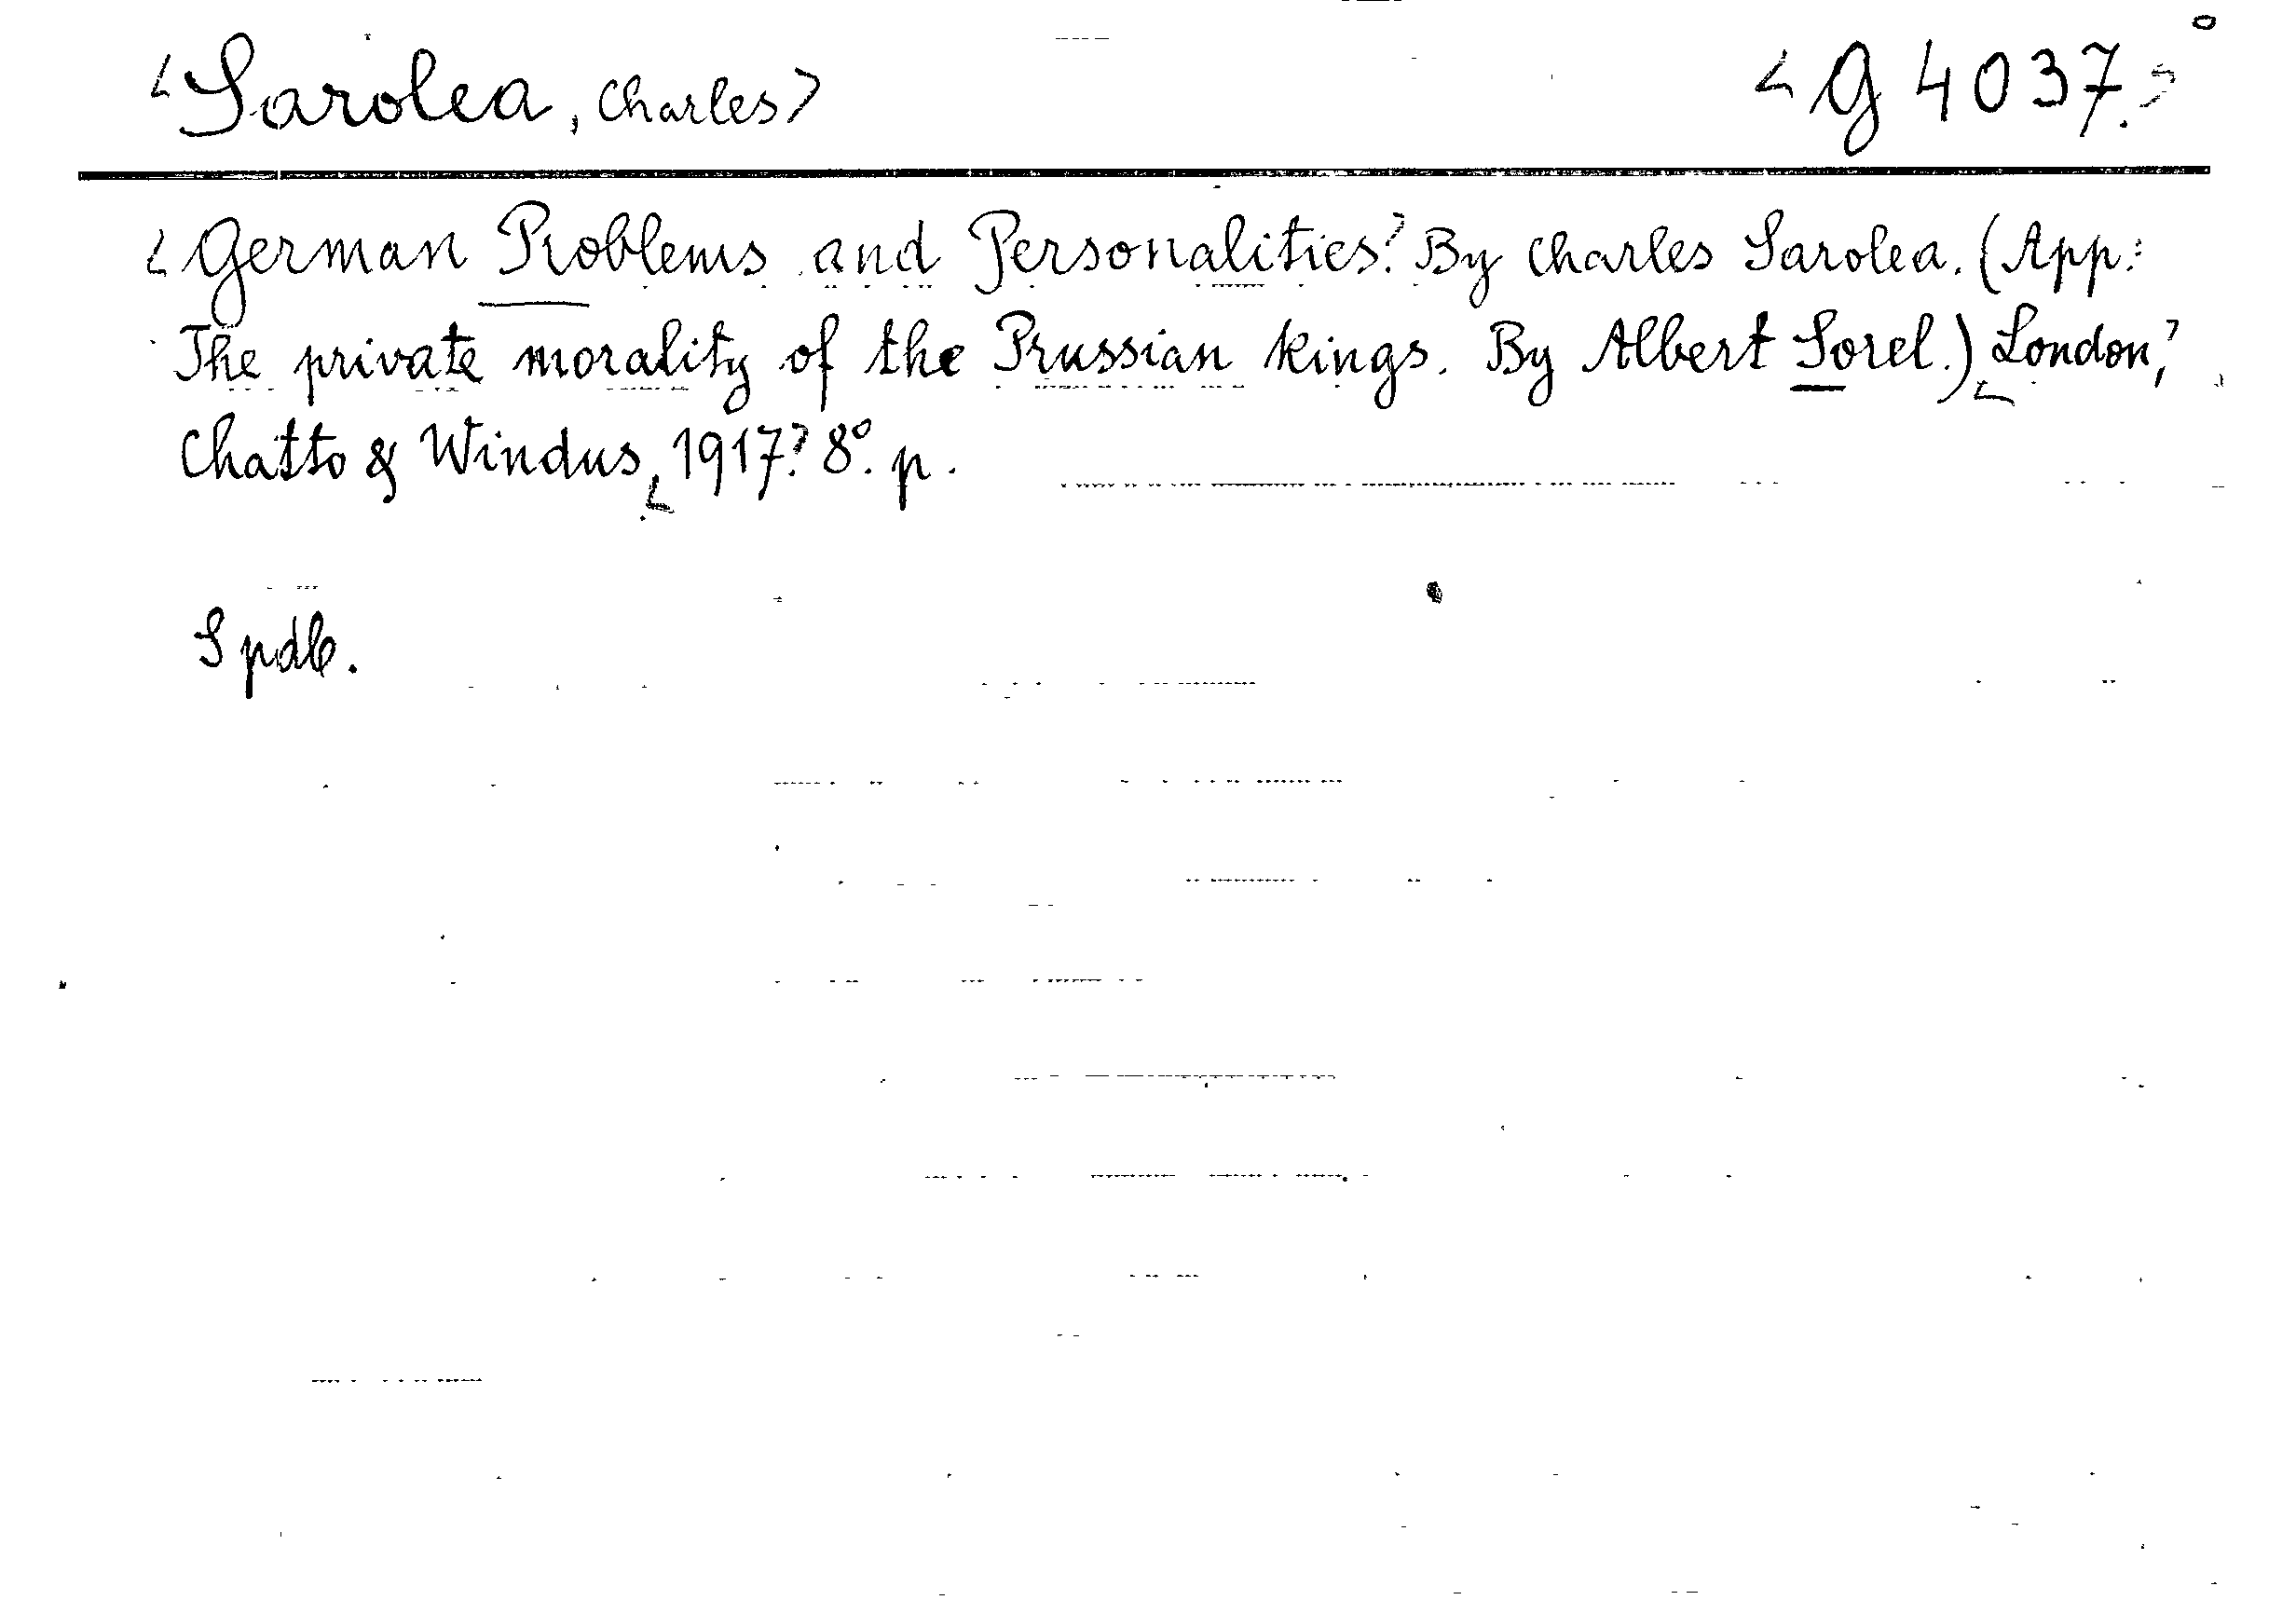 <Sarolea, Charles> <G 4037.>
<German Problems and Personalities.> By Charles Sarolea. (App.:
The private morality of the Prussian kings. By Albert Sorel.) <London,>
Chatto & Windus, <1917.> 8°. p.
S pdb.